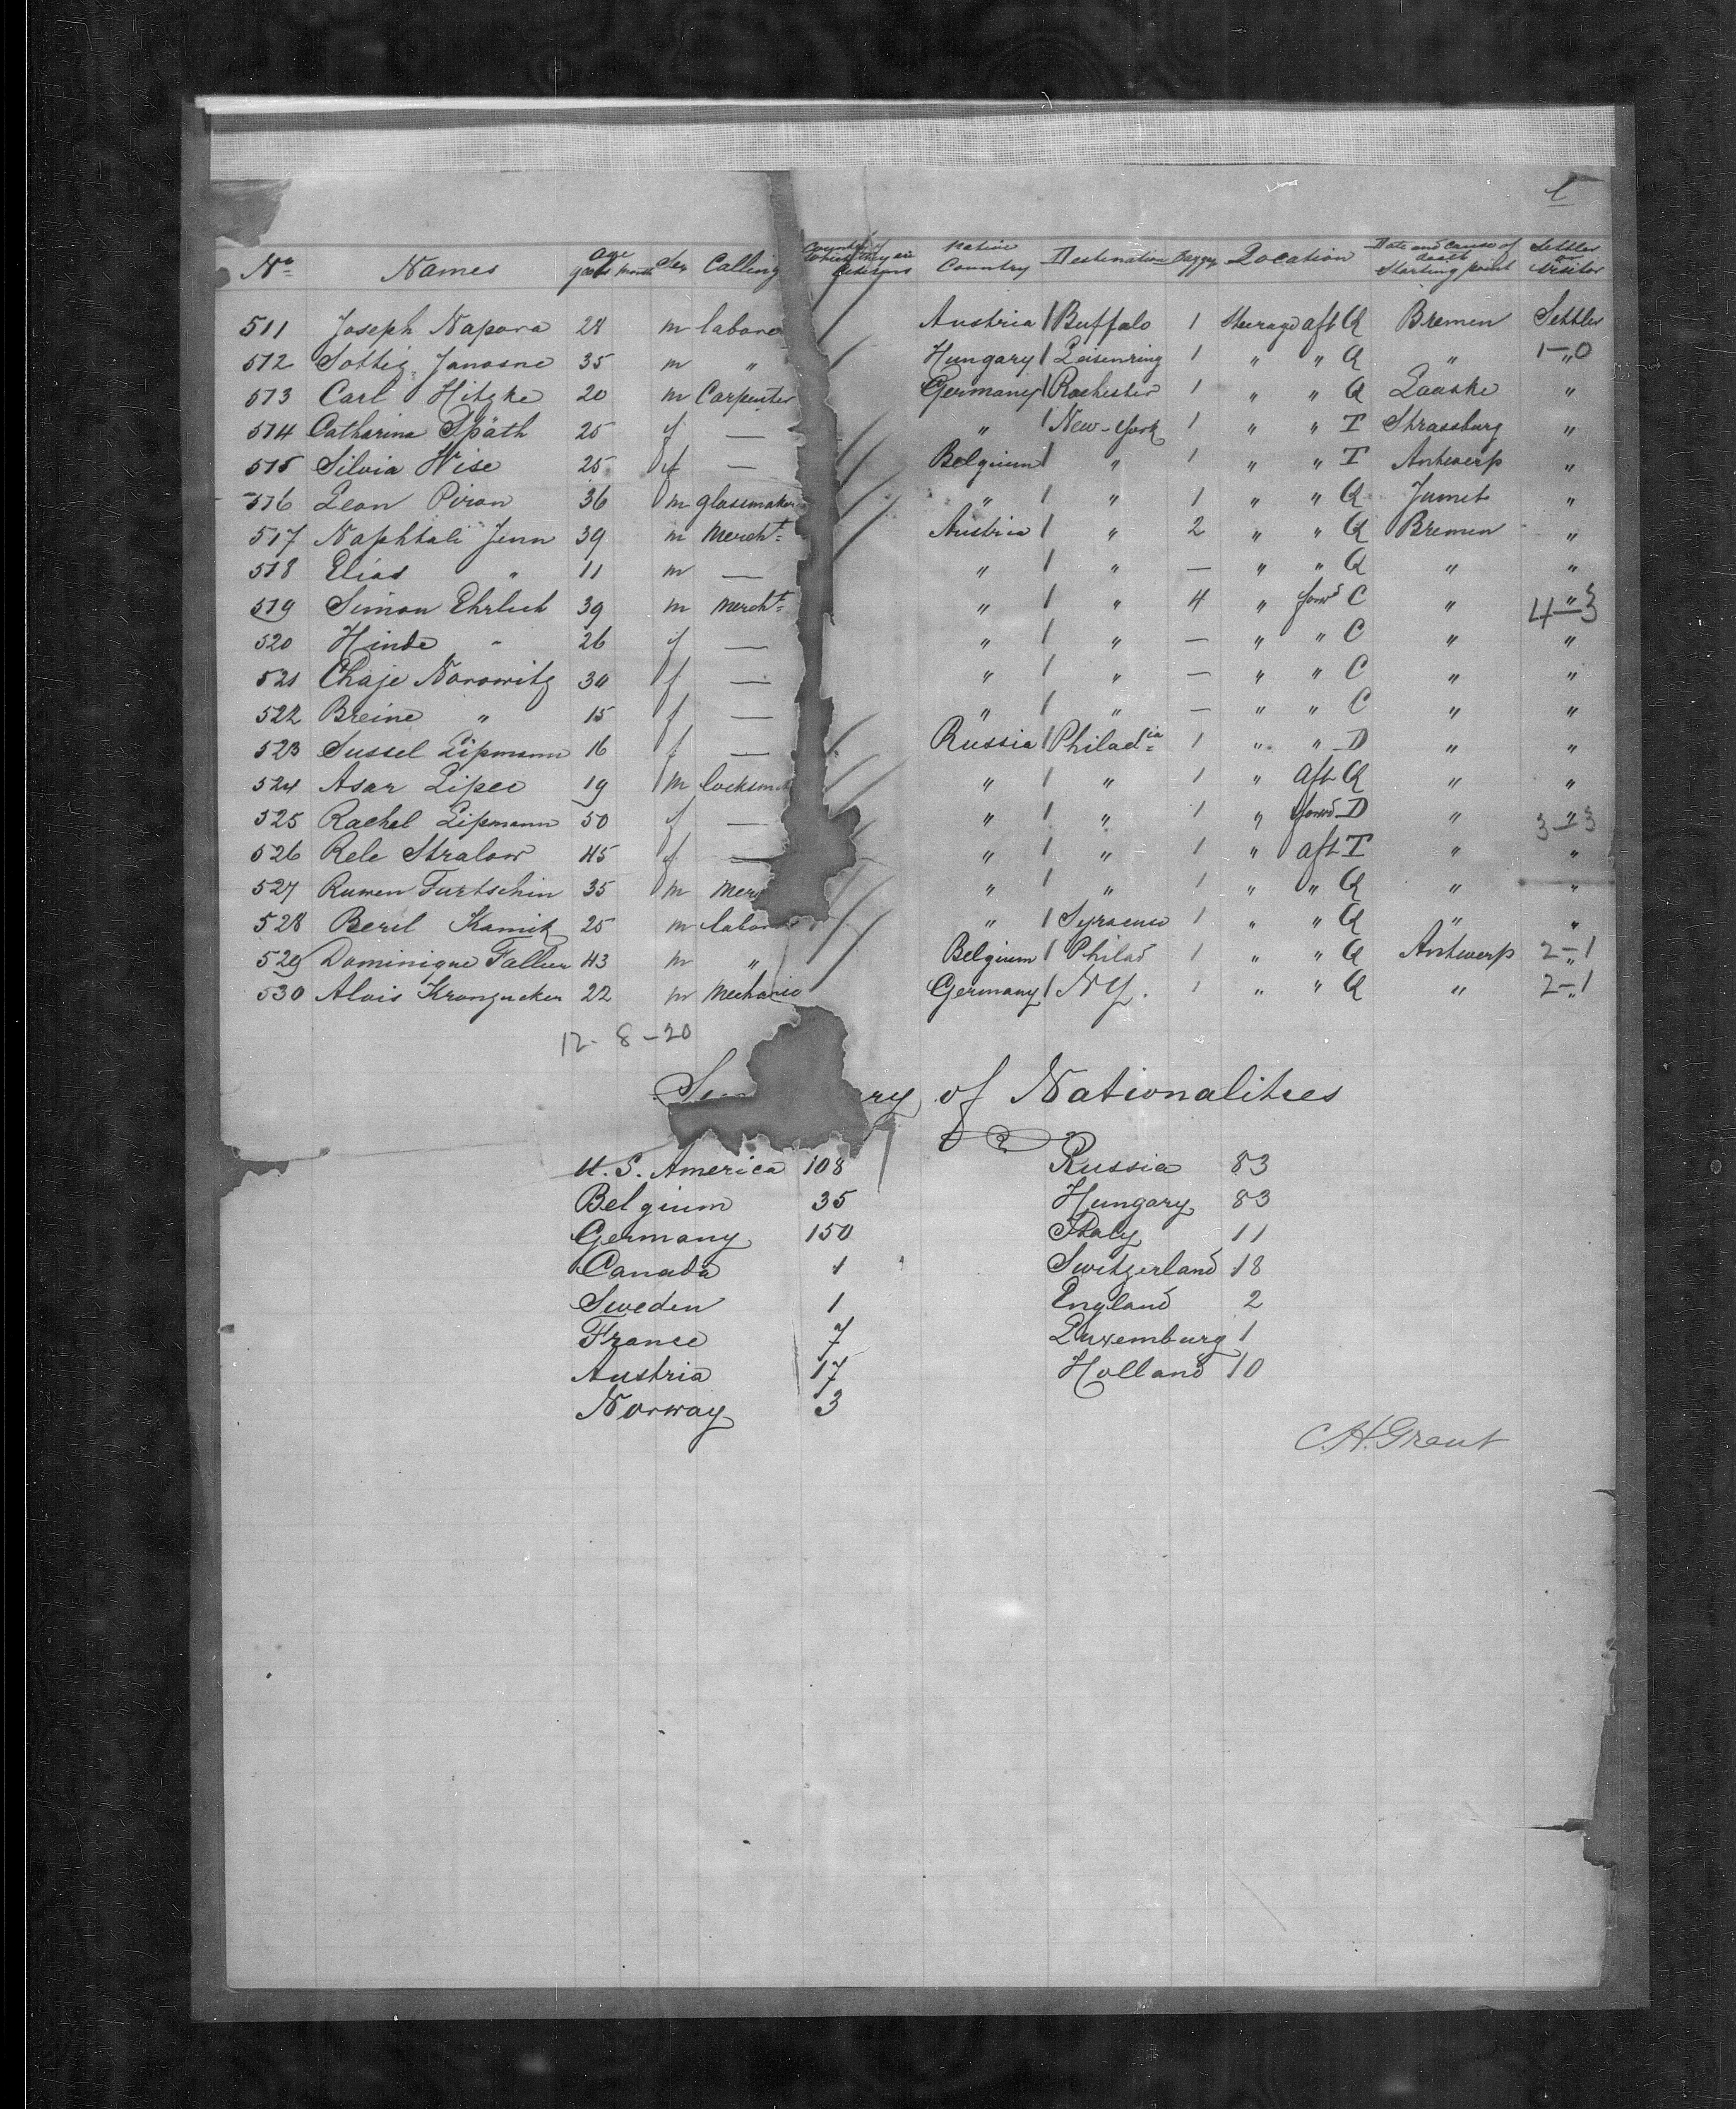 No Names Age years months Sex Calling Country of which they are citizens Native Country Destination Location Date and cause of death Starting point Settler or Visitor
511 Joseph Napora 28 m labore Austria Buffalo 1 Steerage aft Q Bremen Settler
512 35 m " Hungary Leisenring 1 " " Q " " 1-0
513 Carl Hitzke 20 m Carpenter Germany Rochester 1 " " Q Laaske "
514 Catharina Späth 25 f — " New-York 1 " " T Strassburg "
515 Silvia Wise 25 f — Belgium " 1 " " T Antwerp "
516 Leon Piron 36 m glassmaker " " 1 " " Q Jumet "
517 Naphtali Jenn 39 m Mercht Austria " 2 " " Q Bremen "
518 Elias " 11 m — " " — " " Q " "
519 Simon Ehrlich 39 m Mercht " " 4 " forwd C " " 4-3
520 Hinde " 26 f — " " — " " C " "
521 Chaje Norowitz 30 f — " " — " " C " "
522 Breine " 15 f — " " — " " C " "
523 Sussel Lipmann 16 f — Russia Philadia 1 " " D " "
524 Asar Lipec 19 m locksmi " " 1 " aft Q " "
525 Rachel Lipmann 50 f — " " 1 " forwd D " " 3-3
526 Rele Stralow 45 f — " " 1 " aft T " "
527 Rumen Turtschin 35 m Mer " " 1 " " Q " "
528 Beril Kamik 25 m labor " Syracuse 1 " " Q " "
529 Dominique Fallier 43 m " Belgium Philad 1 " " Q Antwerp " 2-1
530 Alois Kronzucker 22 m Mechanic Germany NY. 1 " " Q " " 2-1
12-8-20
Su ry of Nationalities
U.S. America 108 Russia 83
Belgium 35 Hungary 83
Germany 150 Italy 11
Canada 1 Switzerland 18
Sweden 1 England 2
France 7 Luxemburg 1
Austria 17 Holland 10
Norway 3
C.H. Grant